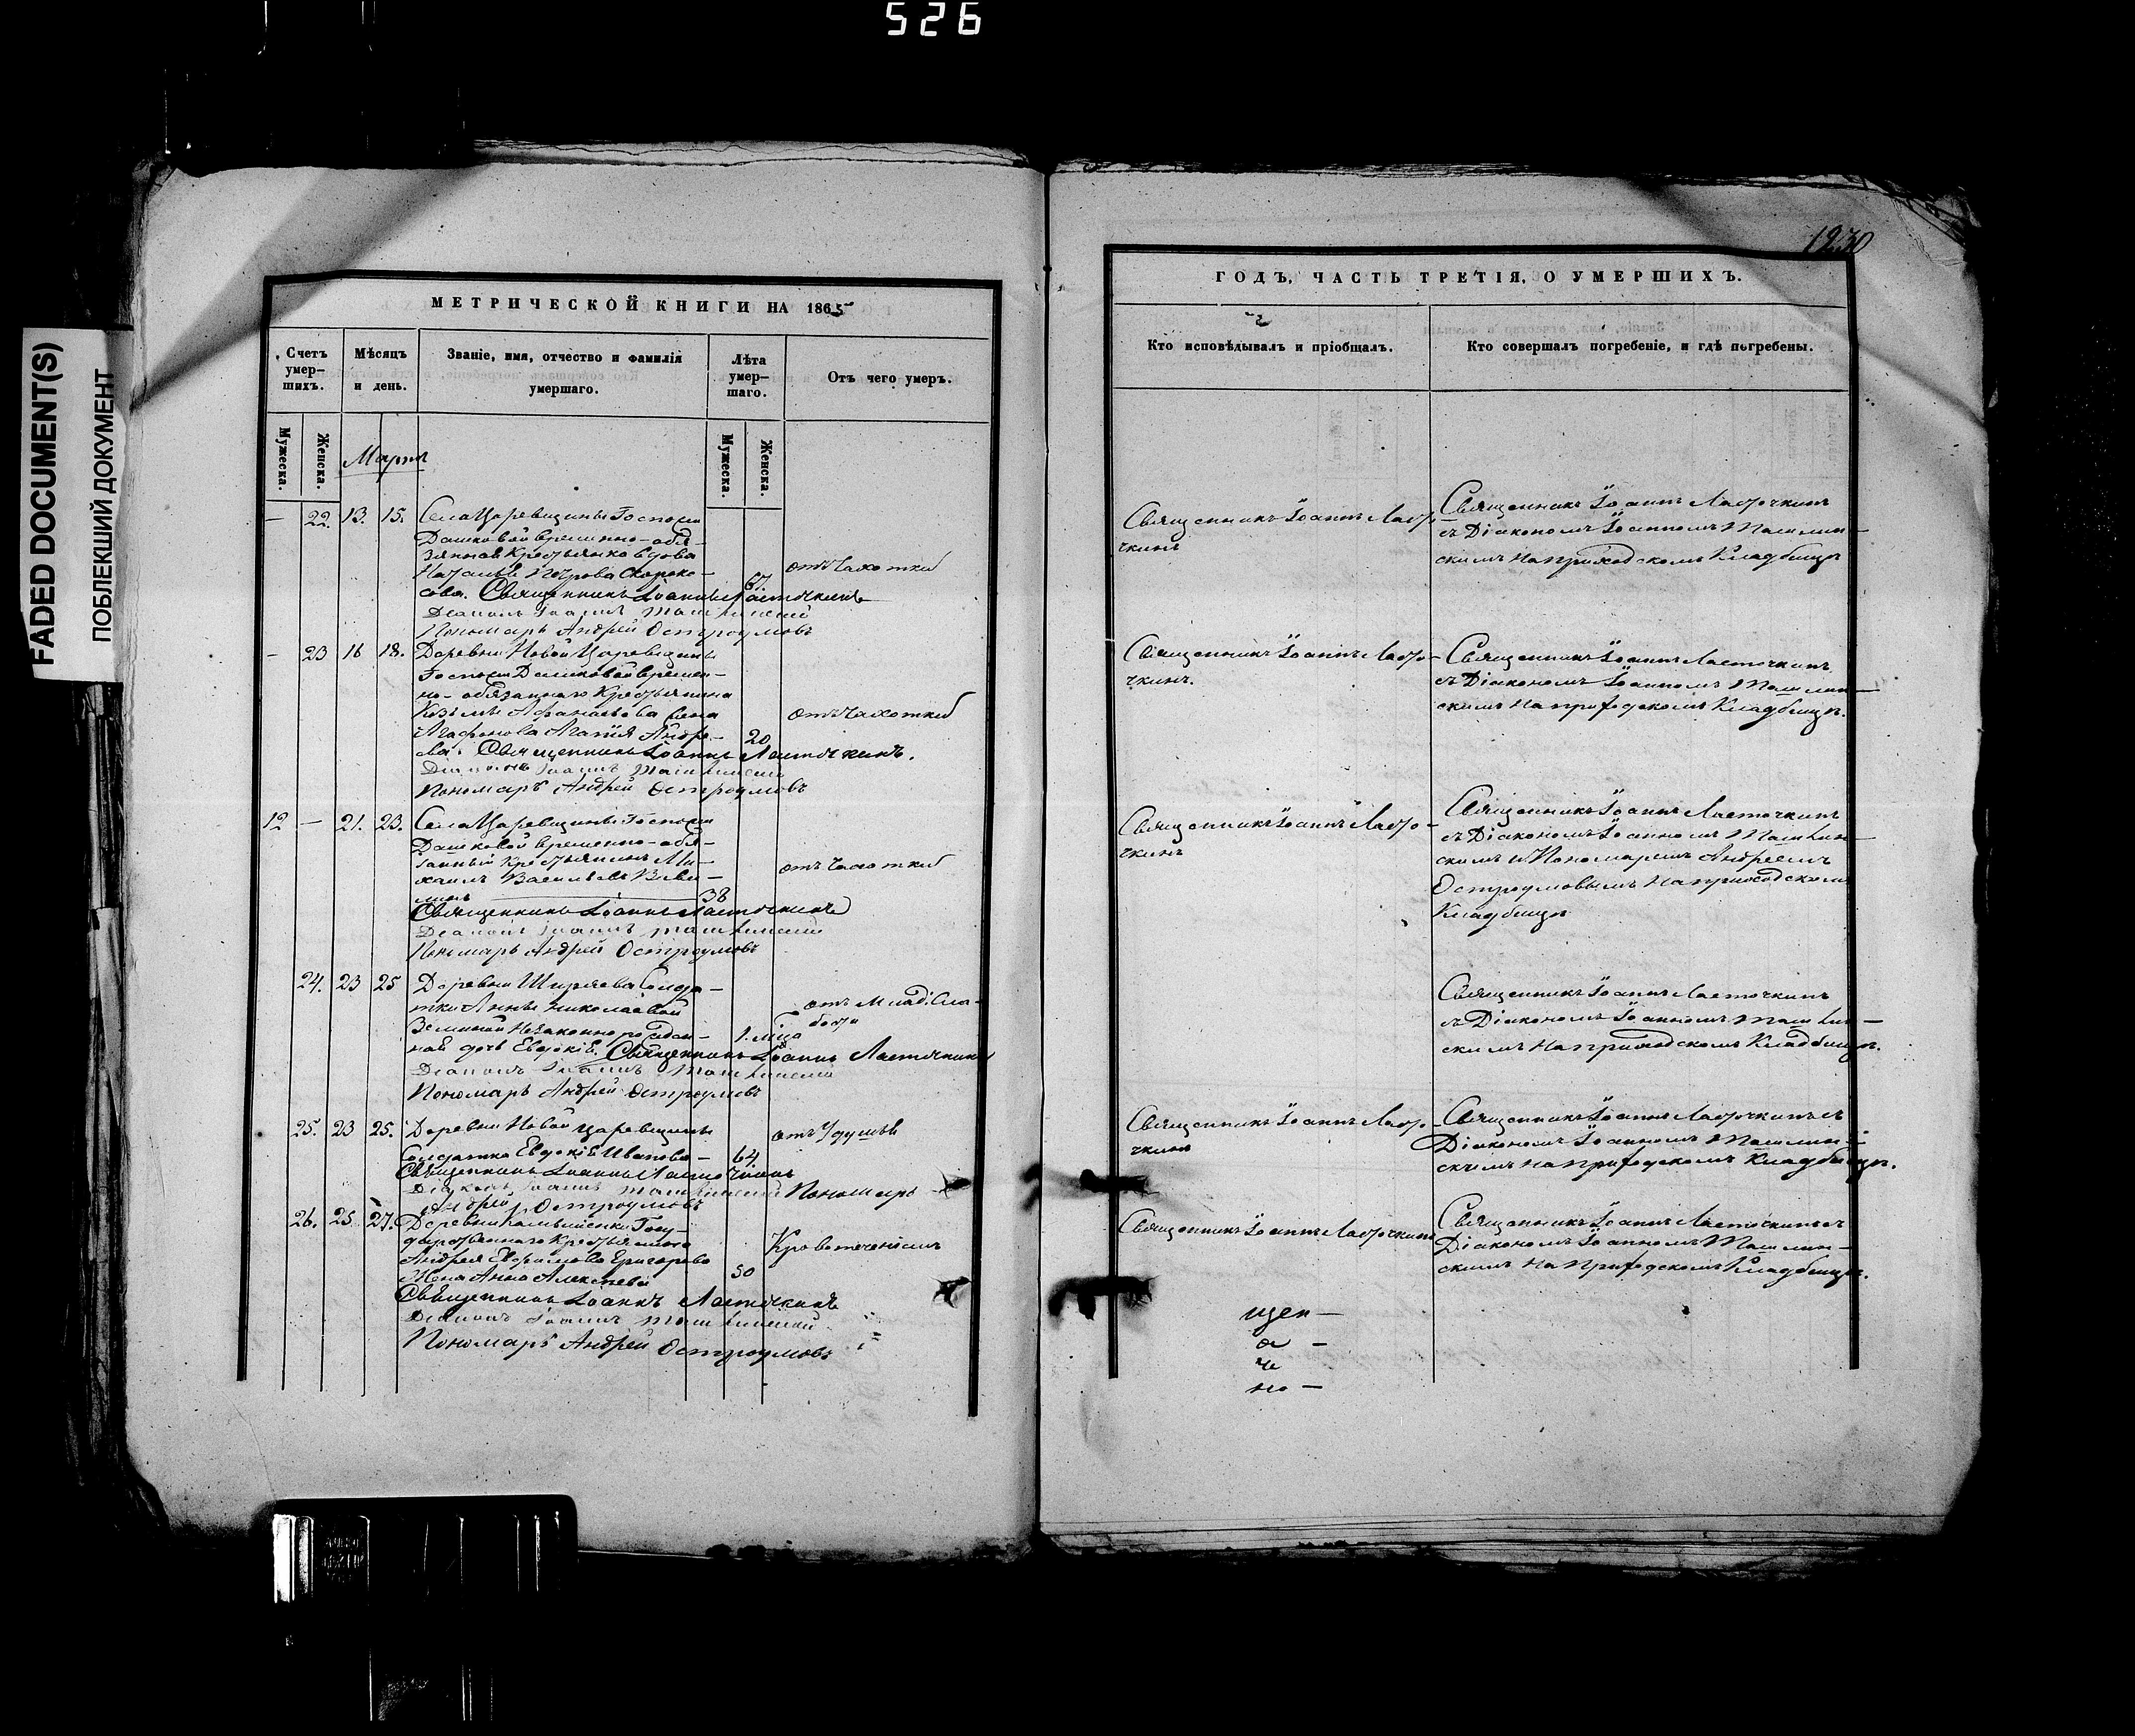 526
FADED DOCUMENT(S)
ПОБЛЕКШИЙ ДОКУМЕНТ
МЕТРИЧЕСКОЙ КНИГИ НА 1865
Счетъ умер-шихъ.
Мѣсяцъ и день.
Званіе, имя, отчество и фамилія умершаго.
Лѣта умер-шаго.
Отъ чего умеръ.
Мужеска.
Женска.
Мужеска.
Женска.
Марта
— 22. 13. 15. Села Царевщины Госпожи
Дашковой временно-обя-
занная Крестьянка вдова
Наталья Петрова Скороко- отъ Чахотки
сова. 67. Священникъ Іоаннъ Ласточкинъ
Діаконъ Іоаннъ
Пономарь Андрей Остроумовъ
— 23 16 18. Деревни Новой Царевщины
Госпожи Дашковой времен-
но-обязаннаго Крестьянина
Козьмы Афанасьева жена отъ Чахотки
Агафонова Агапія Андре- 20
ева. Священникъ Іоаннъ Ласточкинъ.
Діаконъ Іоаннъ
Пономарь Андрей Остроумовъ
12 — 21. 23. Села Царевщины Госпожи
Дашковой временно-обя-
занный Крестьянинъ Ми-
хаилъ Васильевъ отъ Чахотки
38
Священникъ Іоаннъ Ласточкинъ
Діаконъ Іоаннъ
Пономарь Андрей Остроумовъ
24. 23 25 Деревни Ширяева Солда-
тки Анны Николаевой отъ млад. Сла-
незаконнорожден- 1. мѣца бости
ная дочь Евдокія. Священникъ Іоаннъ Ласточкинъ
Діаконъ Іоаннъ
Пономарь Андрей Остроумовъ
25. 23 25. Деревни Новой Царевщины отъ Удушья
Солдатка Евдокія Иванова — 64
Священникъ Іоаннъ Ласточкинъ
Діаконъ Іоаннъ Пономарь
Андрей Остроумовъ
26. 25 27. Деревни Госу-
дарственнаго Крестьянина Кровотеченіемъ
Андрея Евфимова Григорьева
Жена Анна Алексѣева 50
Священникъ Іоаннъ Ласточкинъ
Діаконъ Іоаннъ
Пономарь Андрей Остроумовъ
1230
ГОДЪ, ЧАСТЬ ТРЕТІЯ, О УМЕРШИХЪ.
Кто исповѣдывалъ и пріобщалъ.
Кто совершалъ погребеніе, и гдѣ погребены.
Священникъ Іоаннъ Ласто-
чкинъ
Священникъ Іоаннъ Ласточкинъ
съ Діакономъ Іоанномъ
скимъ на приходскомъ Кладбищѣ
Священникъ Іоаннъ Ласто-
чкинъ.
Священникъ Іоаннъ Ласточкинъ
съ Діакономъ Іоанномъ
скимъ на приходскомъ Кладбищѣ.
Священникъ Іоаннъ Ласто-
чкинъ
Священникъ Іоаннъ Ласточкинъ
съ Діакономъ Іоанномъ
скимъ и Пономаремъ Андреемъ
Остроумовымъ на приходскомъ
Кладбищѣ
Священникъ Іоаннъ Ласточкинъ
съ Діакономъ Іоанномъ
скимъ на приходскомъ Кладбищѣ.
Священникъ Іоаннъ Ласто-
чкинъ
Священникъ Іоаннъ Ласточкинъ съ
Діакономъ Іоанномъ
скимъ на приходскомъ Кладбищѣ.
Священникъ Іоаннъ Ласточкинъ
Священникъ Іоаннъ Ласточкинъ съ
Діакономъ Іоанномъ
скимъ на приходскомъ Кладбищѣ.
щен —
а —
че
но —